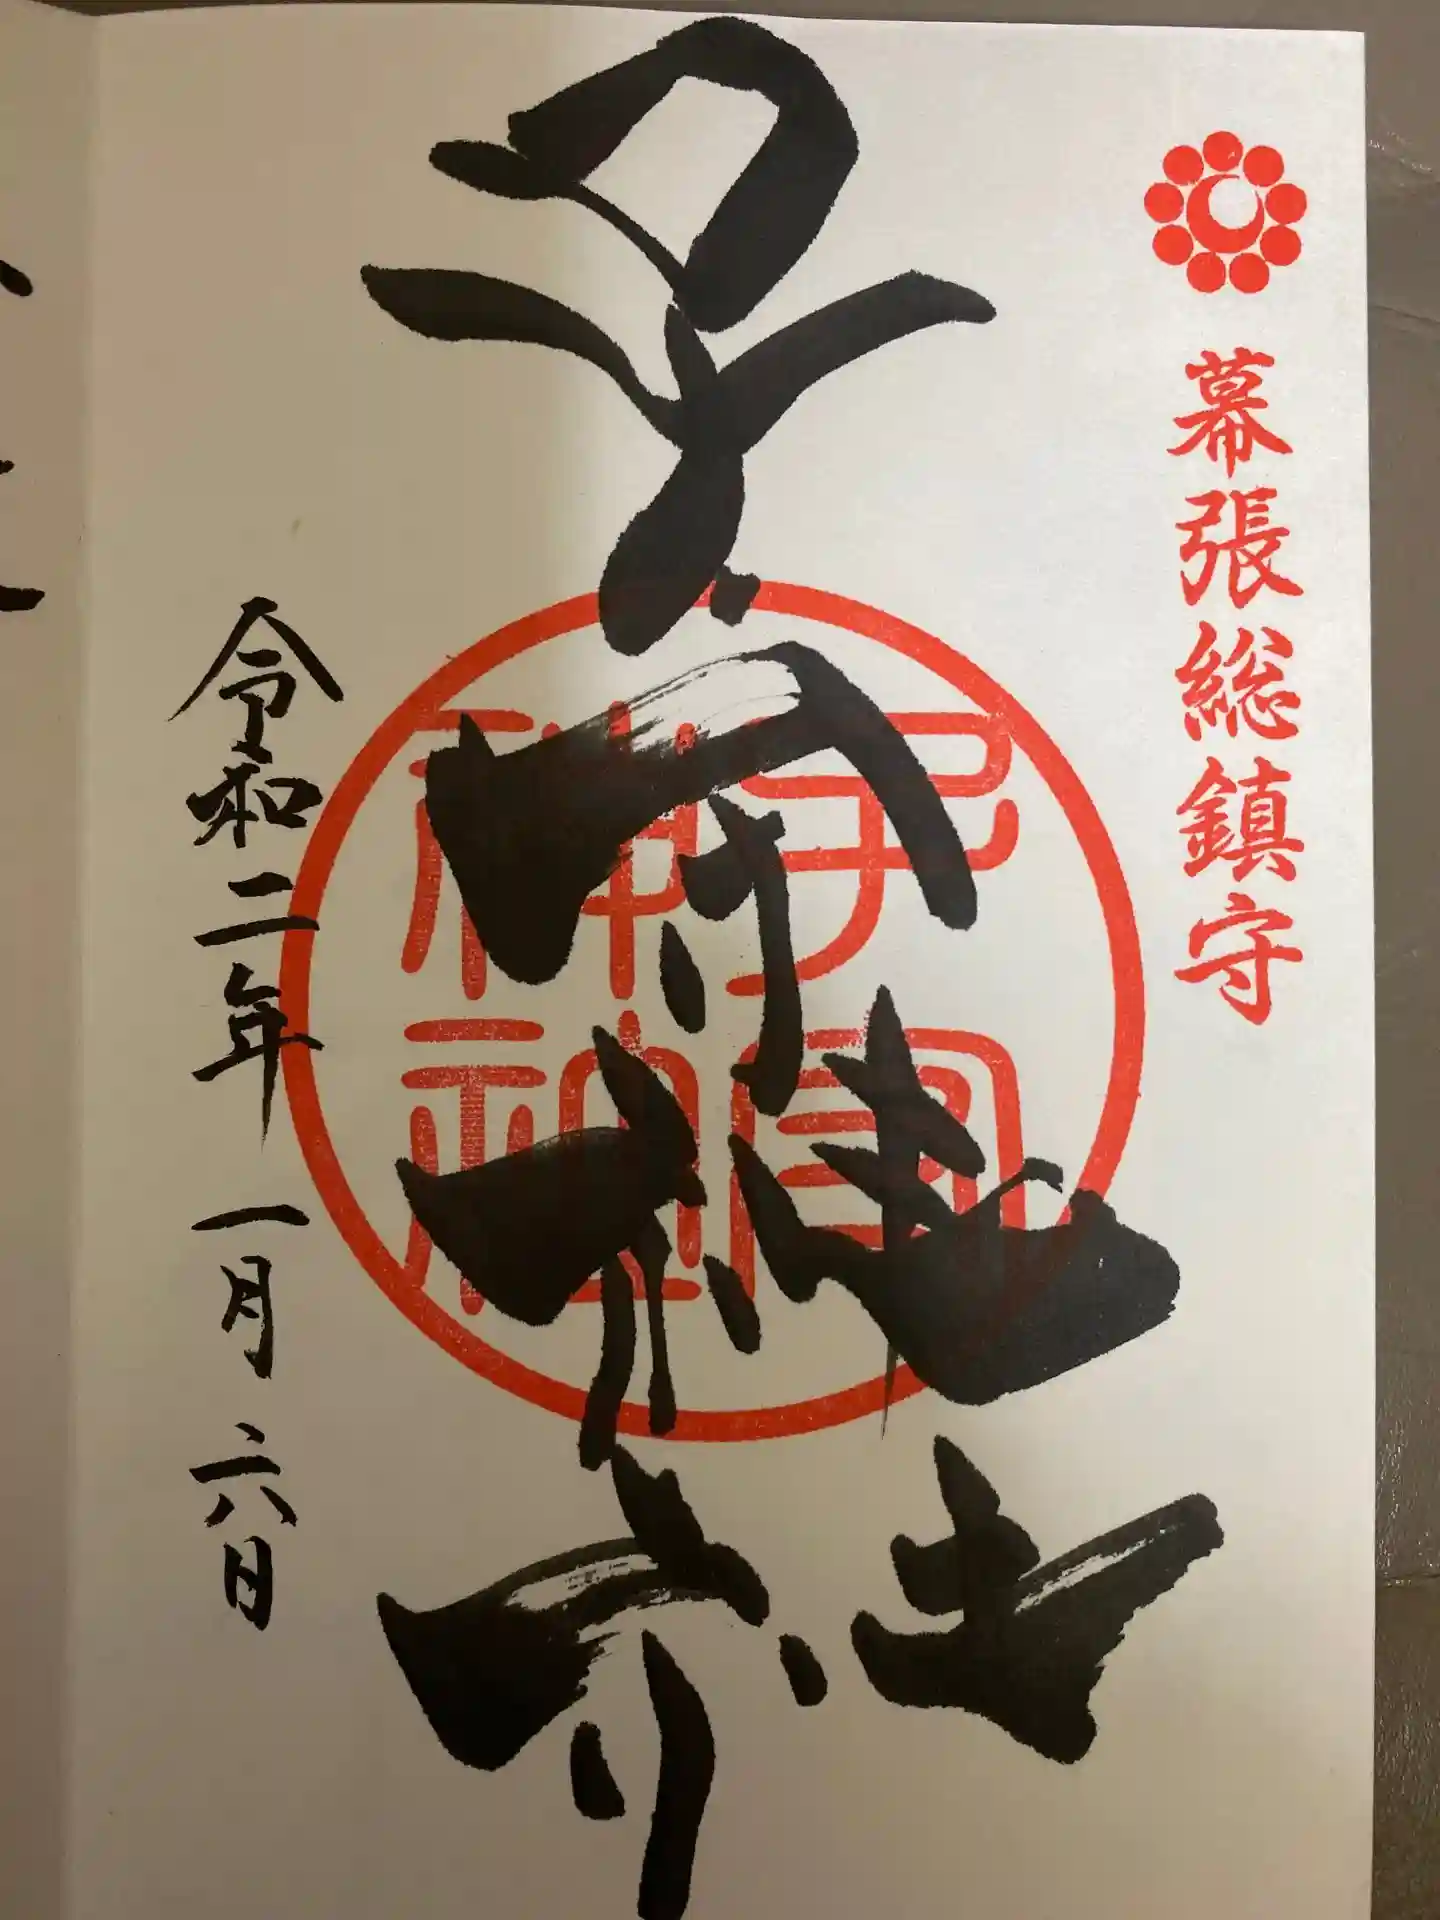 幕張総鎮守
子守神社
子守神社
令和二年 一月 六日